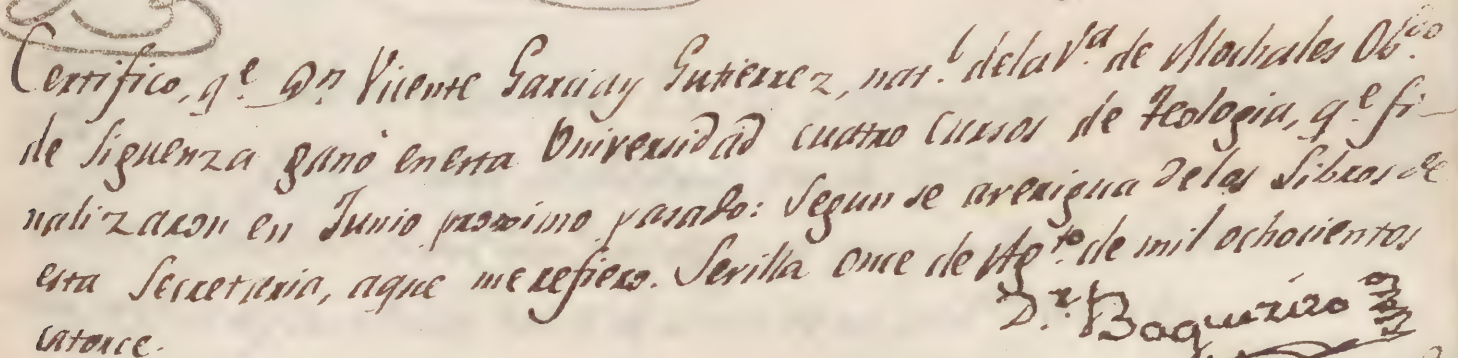 Certifico, q.e D.n Vicente Garcia y Gutierrez, nat.l de la V.a de Mochales Ob.do
de Siguenza ganò en esta Universidad cuatro Cursos de Teologia, q.e fi-
nalizaron en Junio proximo pasado: Segun se averigua de los Libros de
esta Secretaria, a que me refiero. Sevilla once de Ag.to de mil ochocientos
catorce.
D.r Baquerizo